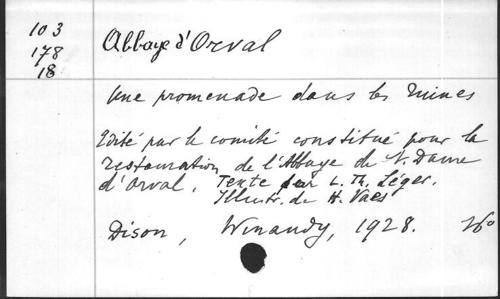 103
178
18
Abbaye d'Orval
Une promenade dans les ruines
Edité par le comité constitué pour la
restauration de l'Abbaye de N. Dame
d'Orval. Texte par L. Th. Léger.
Illustr. de H. Vaes
Dison, Winandy, 1928. 16o